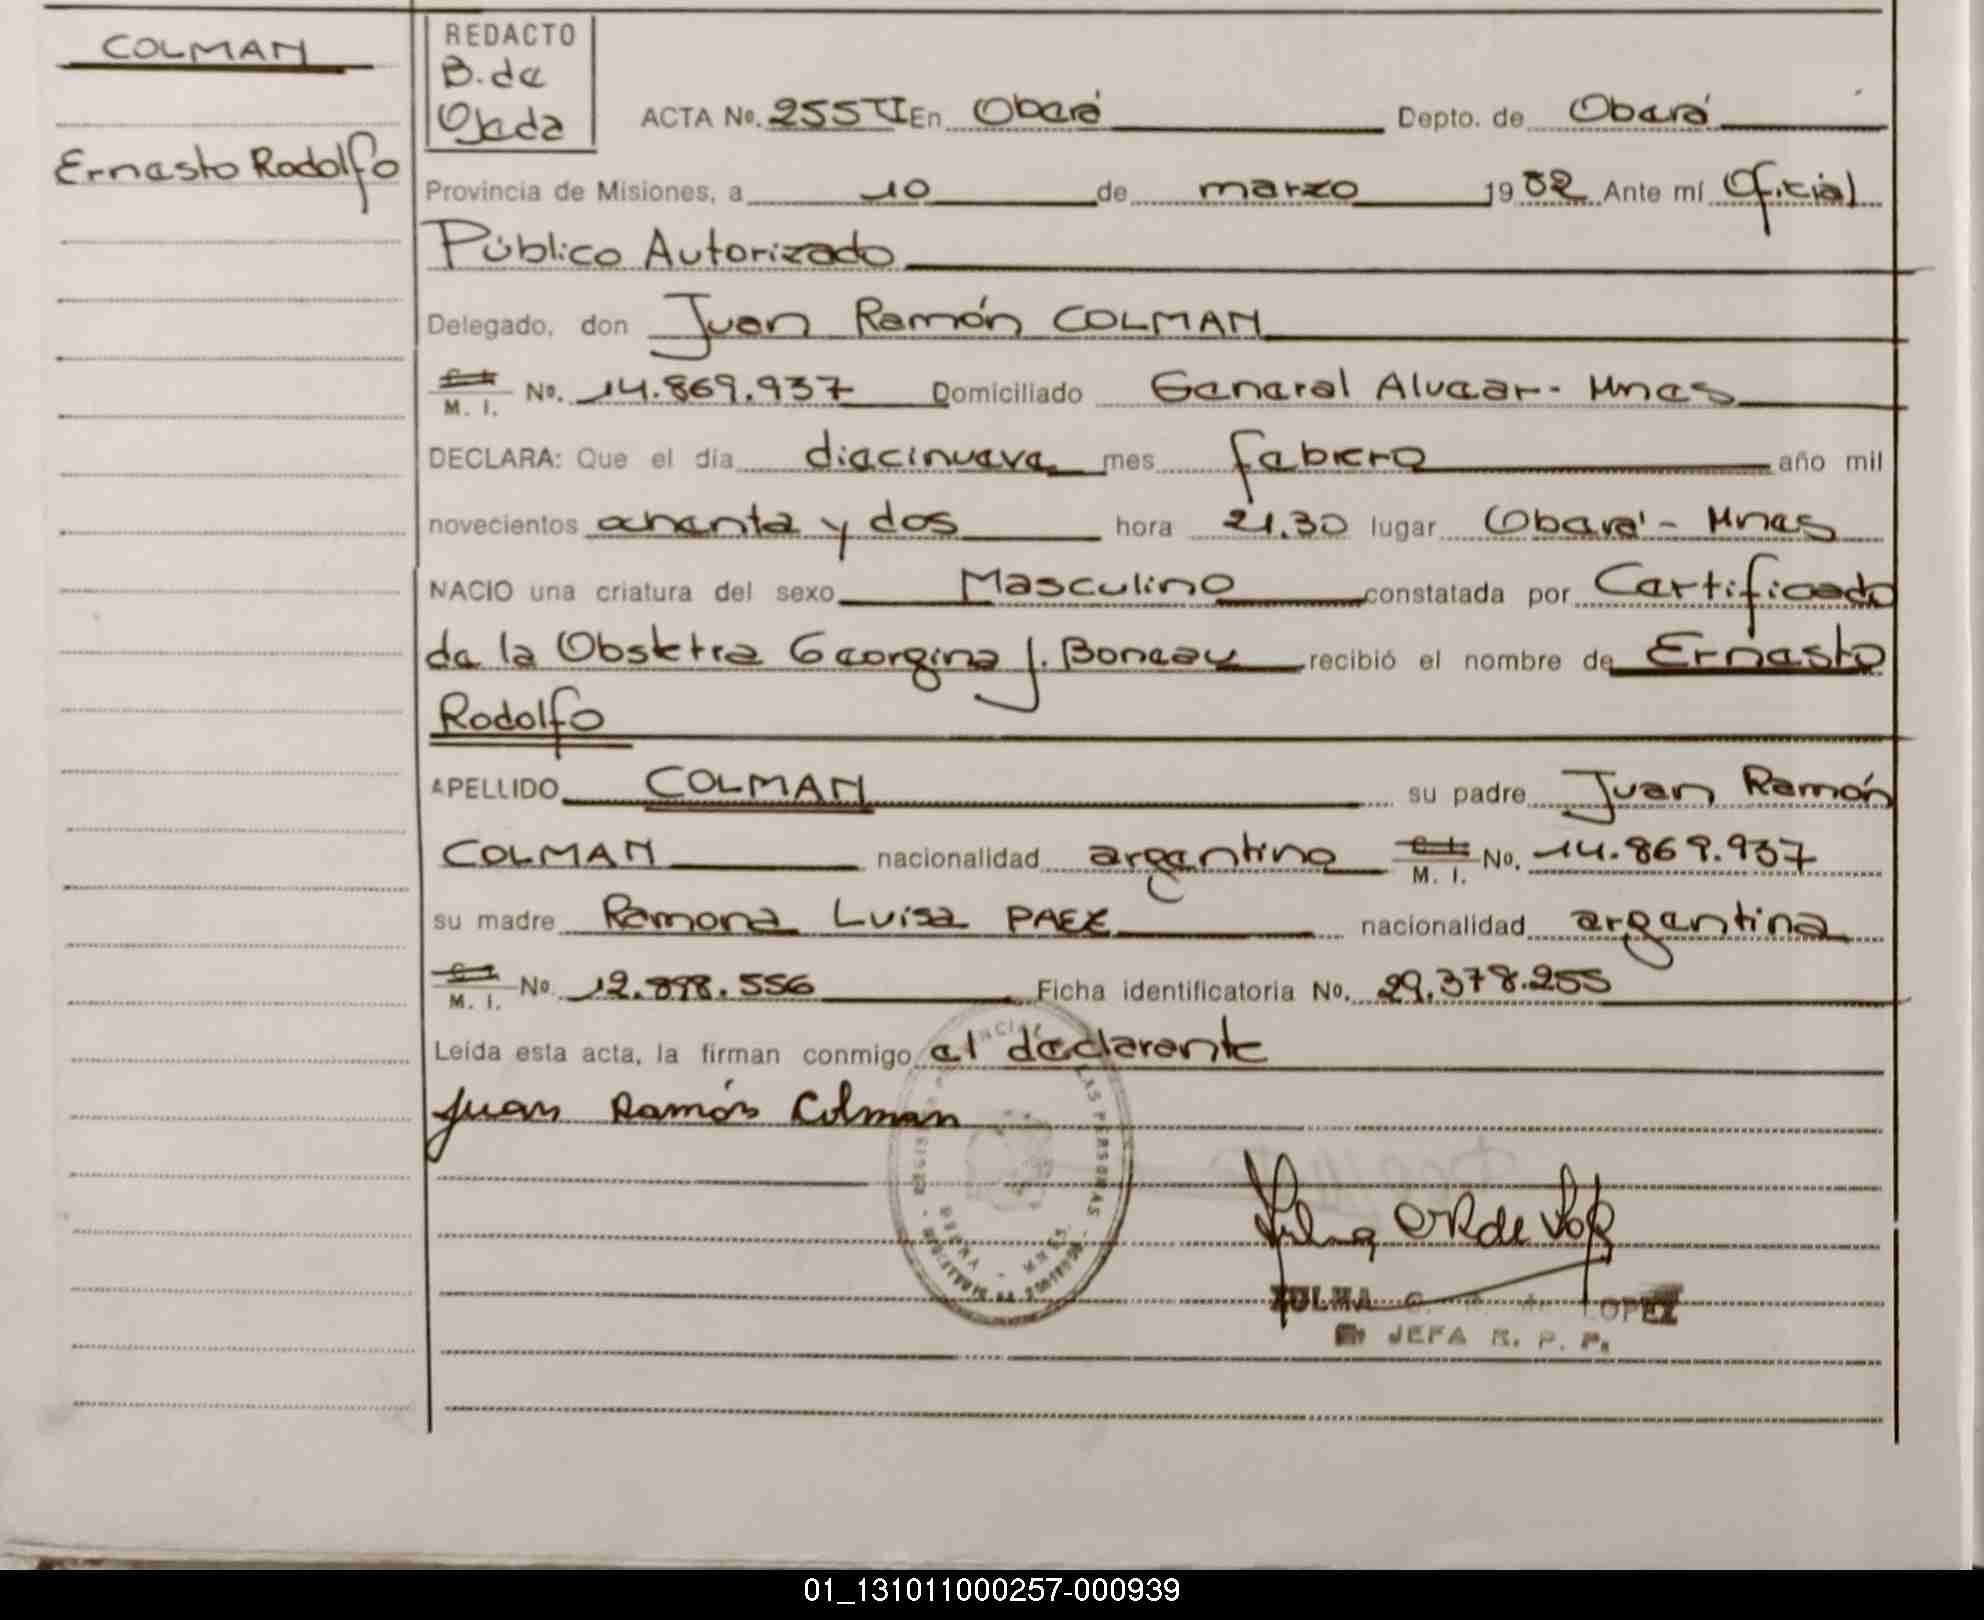 COLMAN
Ernesto Rodolfo
REDACTO
B. de
Ojeda
ACTA No. 255 TI En Oberá Depto. de Oberá
Provincia de Misiones, a 10 de marzo 1982 Ante mí Oficial
Público Autorizado
Delegado, don Juan Ramón COLMAN
M. I. No. 14.869.937 Domiciliado General Alvear - Mnes
DECLARA: Que el día diecinueve mes febrero año mil
novecientos ochenta y dos hora 21,30 lugar Oberá - Mnes
NACIO una criatura del sexo Masculino constatada por Certificado
de la Obstetra Georgina J. recibió el nombre de Ernesto
Rodolfo
APELLIDO COLMAN su padre Juan Ramón
COLMAN nacionalidad argentino M. I. No. 14.869.937
su madre Ramona Luisa PAEZ nacionalidad argentina
M. I. No. 12.898.556 Ficha identificatoria No. 29.378.255
Leída esta acta, la firman conmigo el declarante
Juan Ramón Colman
ZULMA LOPEZ
JEFA R. P. P.
01_131011000257-000939